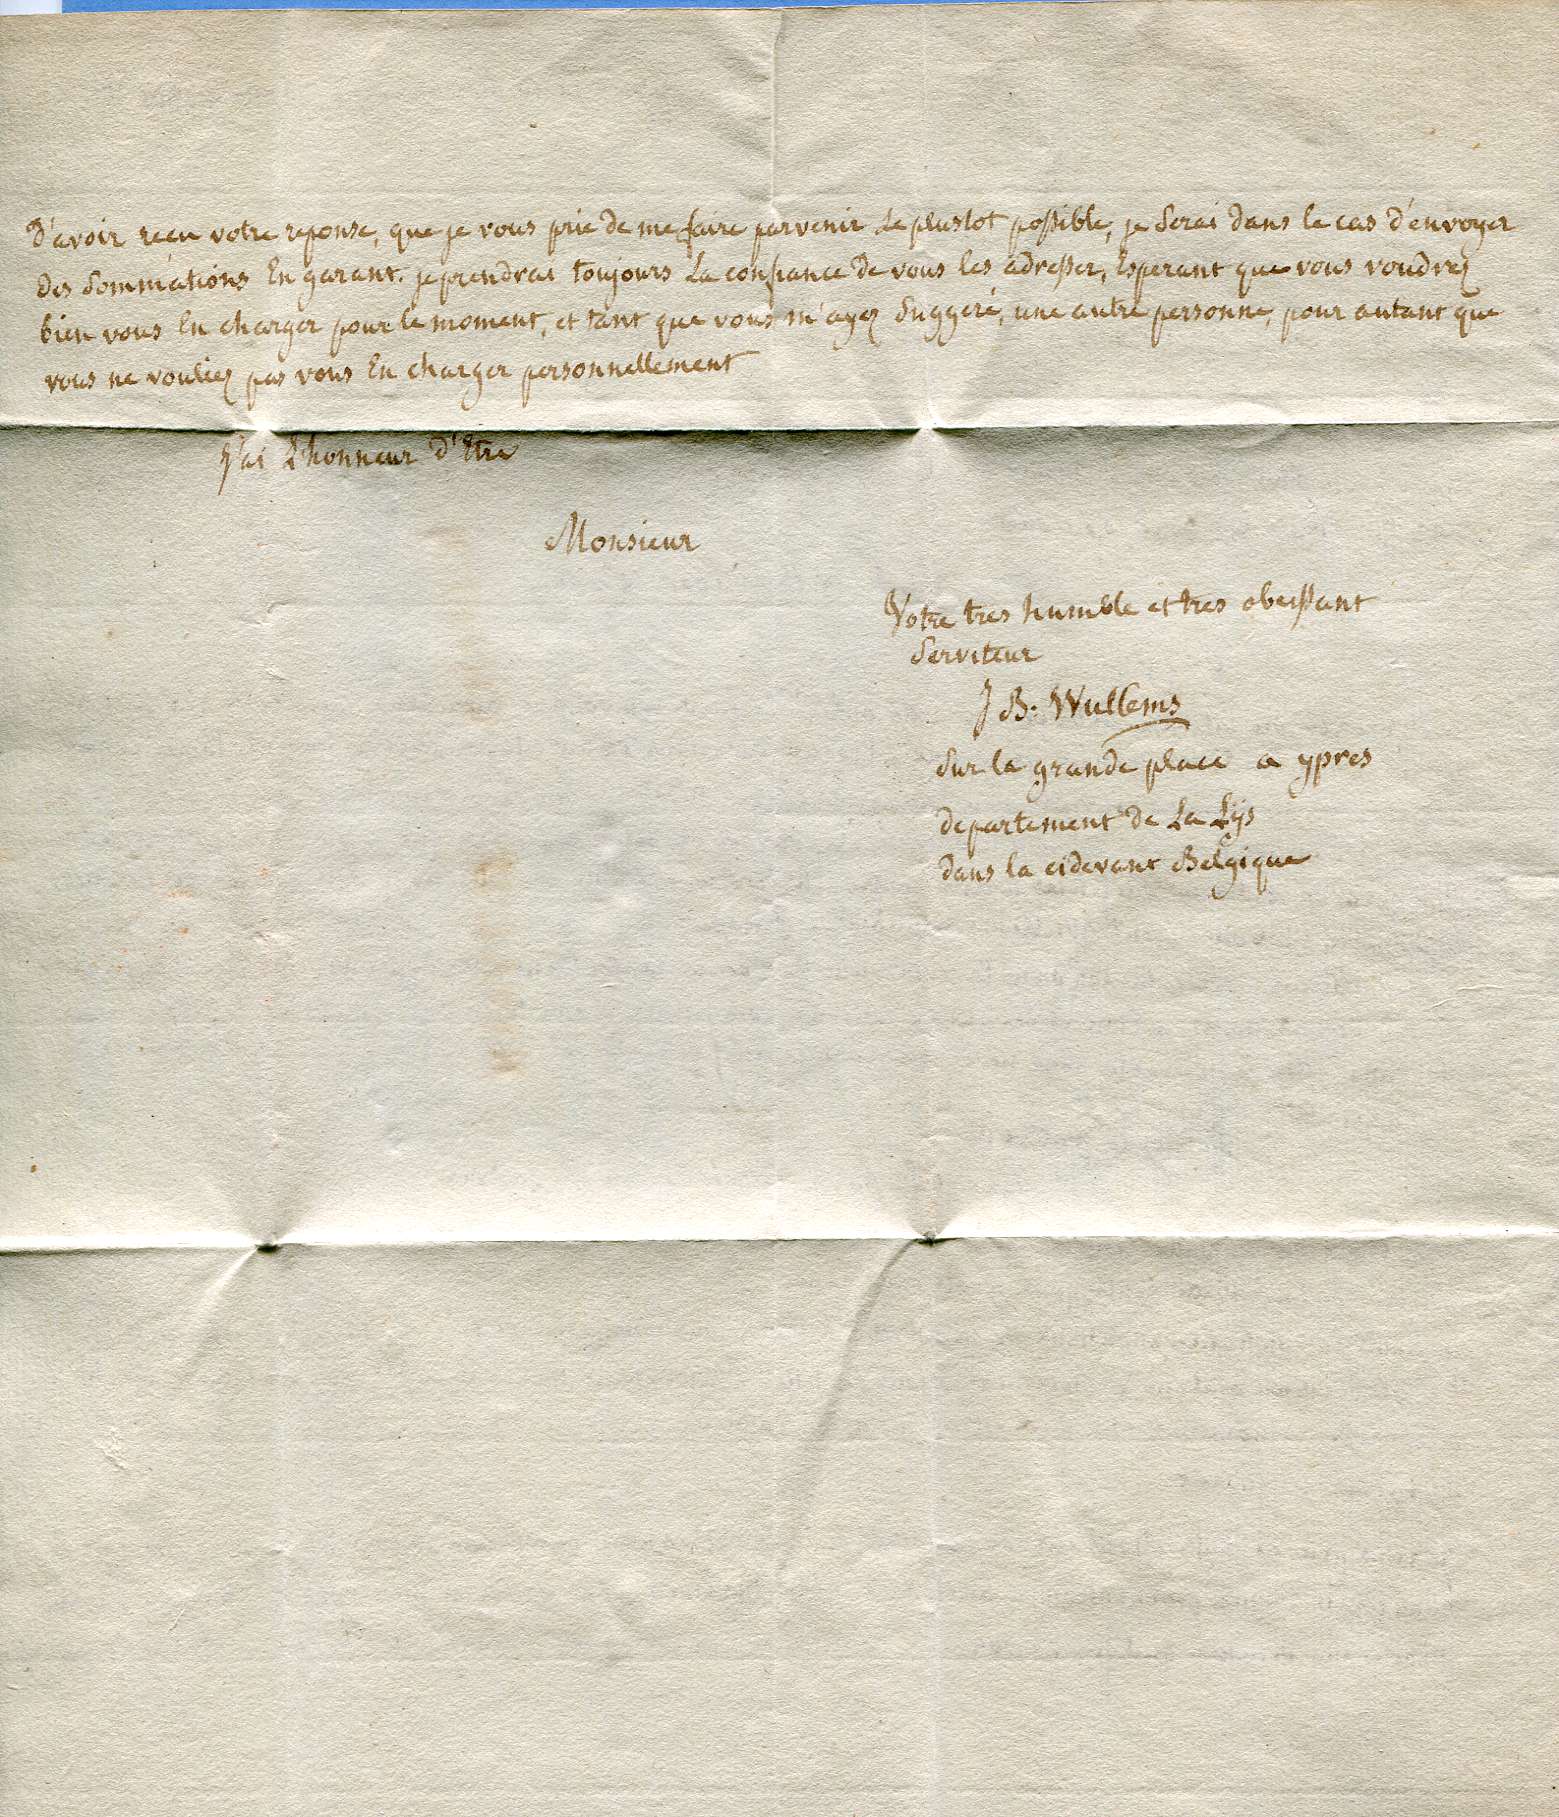 d'avoir reçu votre reponse, que je vous prie de me faire parvenir le plustot possible, je serai dans le cas d'envoyer
des sommations En garant. je prendrai toujours la confiance de vous les adresser, Esperant que vous voudrez
bien vous En charger pour le moment, et tant que vous m'ayez suggeré, une autre personne, pour autant que
vous ne vouliez pas vous En charger personnellement
J'ai L'honneur d'Etre
Monsieur
Votre tres humble et tres obeissant
Serviteur
J B. Wullems
Sur la grande place a ypres
departement de La Lÿs
dans la cidevant Belgique